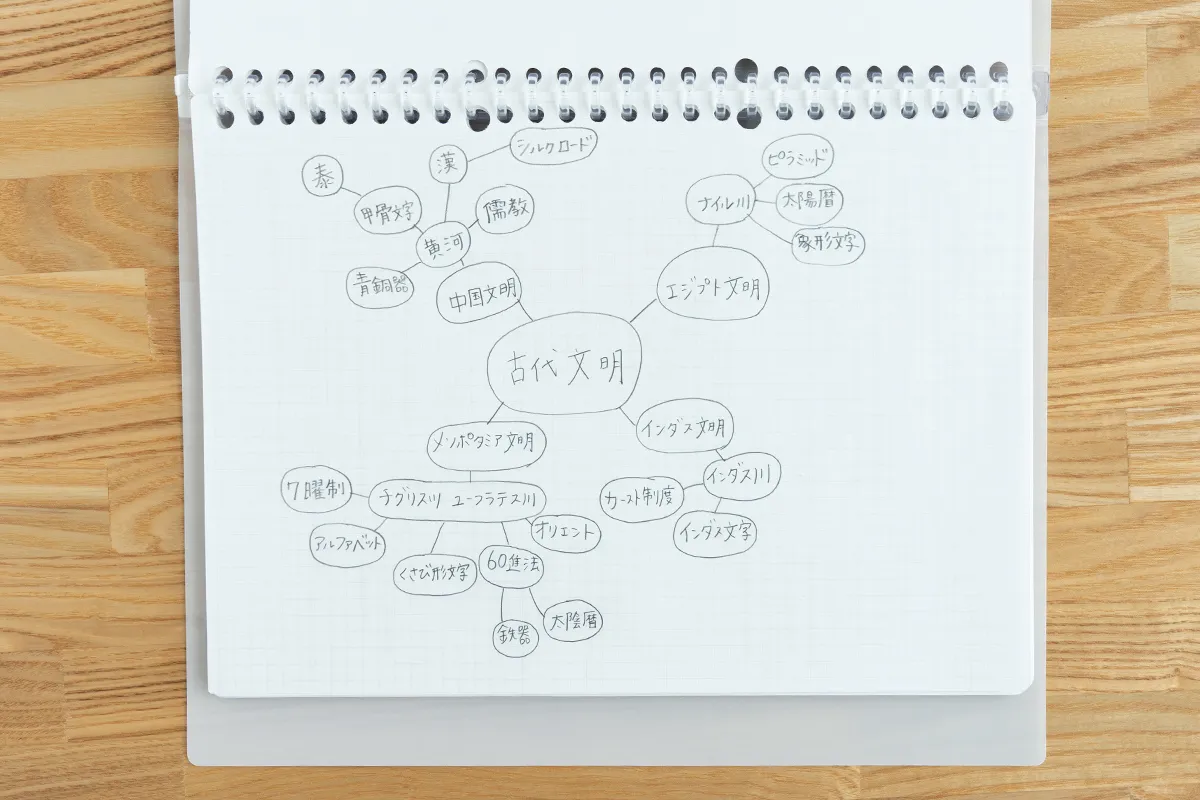 古代文明
中国文明
黄河
甲骨文字
泰
漢
シルクロード
儒教
青銅器
エジプト文明
ナイル川
ピラミッド
太陽暦
象形文字
メソポタミア文明
チグリス川 ユーフラテス川
7曜制
アルファベット
くさび形文字
60進法
鉄器
太陰暦
オリエント
インダス文明
インダス川
カースト制度
インダス文字